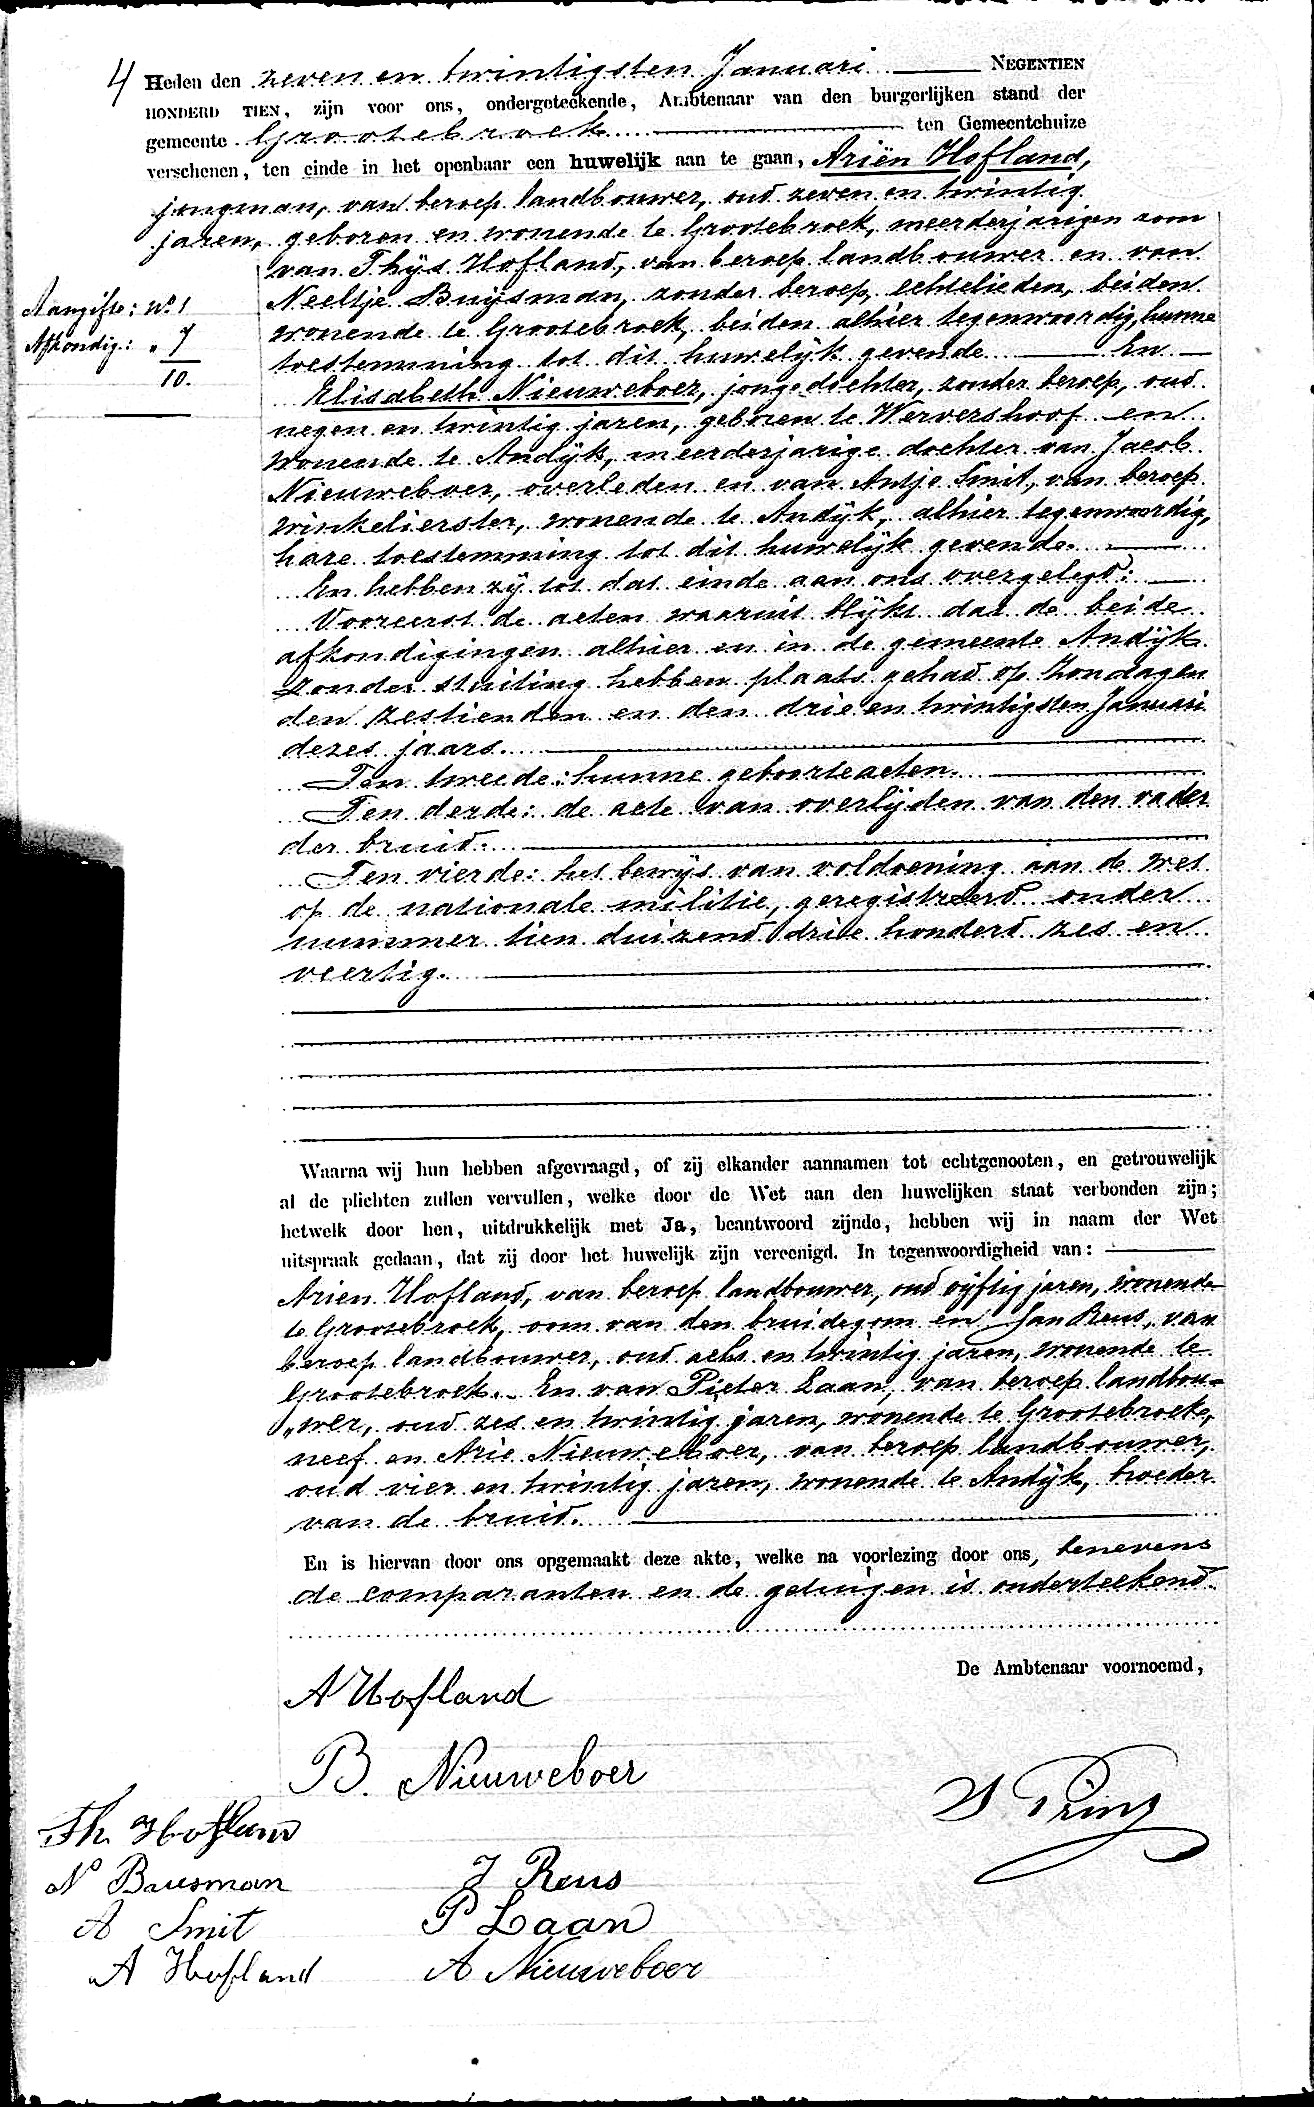 4 Heden den zeven en twintigsten Januari NEGENTIEN
HONDERD TIEN, zijn voor ons, ondergeteekende, Ambtenaar van den burgerlijken stand der
gemeente Grootebroek ten Gemeentehuize
verschenen, ten einde in het openbaar een huwelijk aan te gaan, Ariën Hofland,
jongman, van beroep landbouwer, oud zeven en twintig
jaren, geboren en wonende te Grootebroek, meerderjarigen zoon
van Thijs Hofland, van beroep landbouwer en van
Neeltje Buijsman, zonder beroep, echtelieden, beiden
wonende te Grootebroek, beiden alhier tegenwoordig, hunne
toestemming tot dit huwelijk gevende En
Aangifte: No 1
Afkondig.: „ 7
10.
Elisabeth Nieuweboer, jonge dochter, zonder beroep, oud
negen en twintig jaren, geboren te Wervershoof en
wonende te Andijk, meerderjarige dochter van Jacob
Nieuweboer, overleden en van Antje Smit, van beroep
winkelierster, wonende te Andijk, alhier tegenwoordig,
hare toestemming tot dit huwelijk gevende.
En hebben zij tot dat einde aan ons overgelegd:
Vooreerst de acten waaruit blijkt dat de beide
afkondigingen alhier en in de gemeente Andijk
zonder stuiting hebben plaats gehad op Zondagen
den zestienden en den drie en twintigsten Januari
dezes jaars.
Ten tweede: hunne geboorteacten.
Ten derde: de acte van overlijden van den vader
der bruid.
Ten vierde: het bewijs van voldoening aan de wet
op de nationale militie, geregistreerd onder
nummer tien duizend drie honderd zes en
veertig.
Waarna wij hun hebben afgevraagd, of zij elkander aannamen tot echtgenooten, en getrouwelijk
al de plichten zullen vervullen, welke door de Wet aan den huwelijken staat verbonden zijn;
hetwelk door hen, uitdrukkelijk met Ja, beantwoord zijnde, hebben wij in naam der Wet
uitspraak gedaan, dat zij door het huwelijk zijn vereenigd. In tegenwoordigheid van:
Arien Hofland, van beroep landbouwer, oud vijftig jaren, wonende
te Grootebroek, oom van den bruidegom en Jan Reus, van
beroep landbouwer, oud acht en twintig jaren, wonende te
Grootebroek. En van Pieter Laan, van beroep landbou=
„wer, oud zes en twintig jaren, wonende te Grootebroek,
neef en Arie Nieuweboer, van beroep landbouwer,
oud vier en twintig jaren, wonende te Andijk, broeder
van de bruid.
En is hiervan door ons opgemaakt deze akte, welke na voorlezing door ons, benevens
de comparanten en de getuigen is onderteekend.
De Ambtenaar voornoemd,
A Hofland
B. Nieuweboer
Prins
Th. Hofland
N Buusman
A Smit
A Hofland
J Reus
P Laan
A Nieuweboer